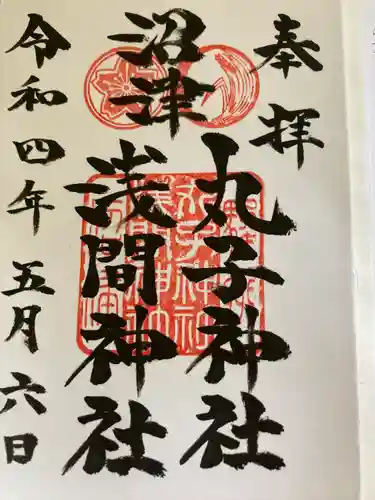 奉拝
沼津
丸子神社
浅間神社
令和四年五月六日